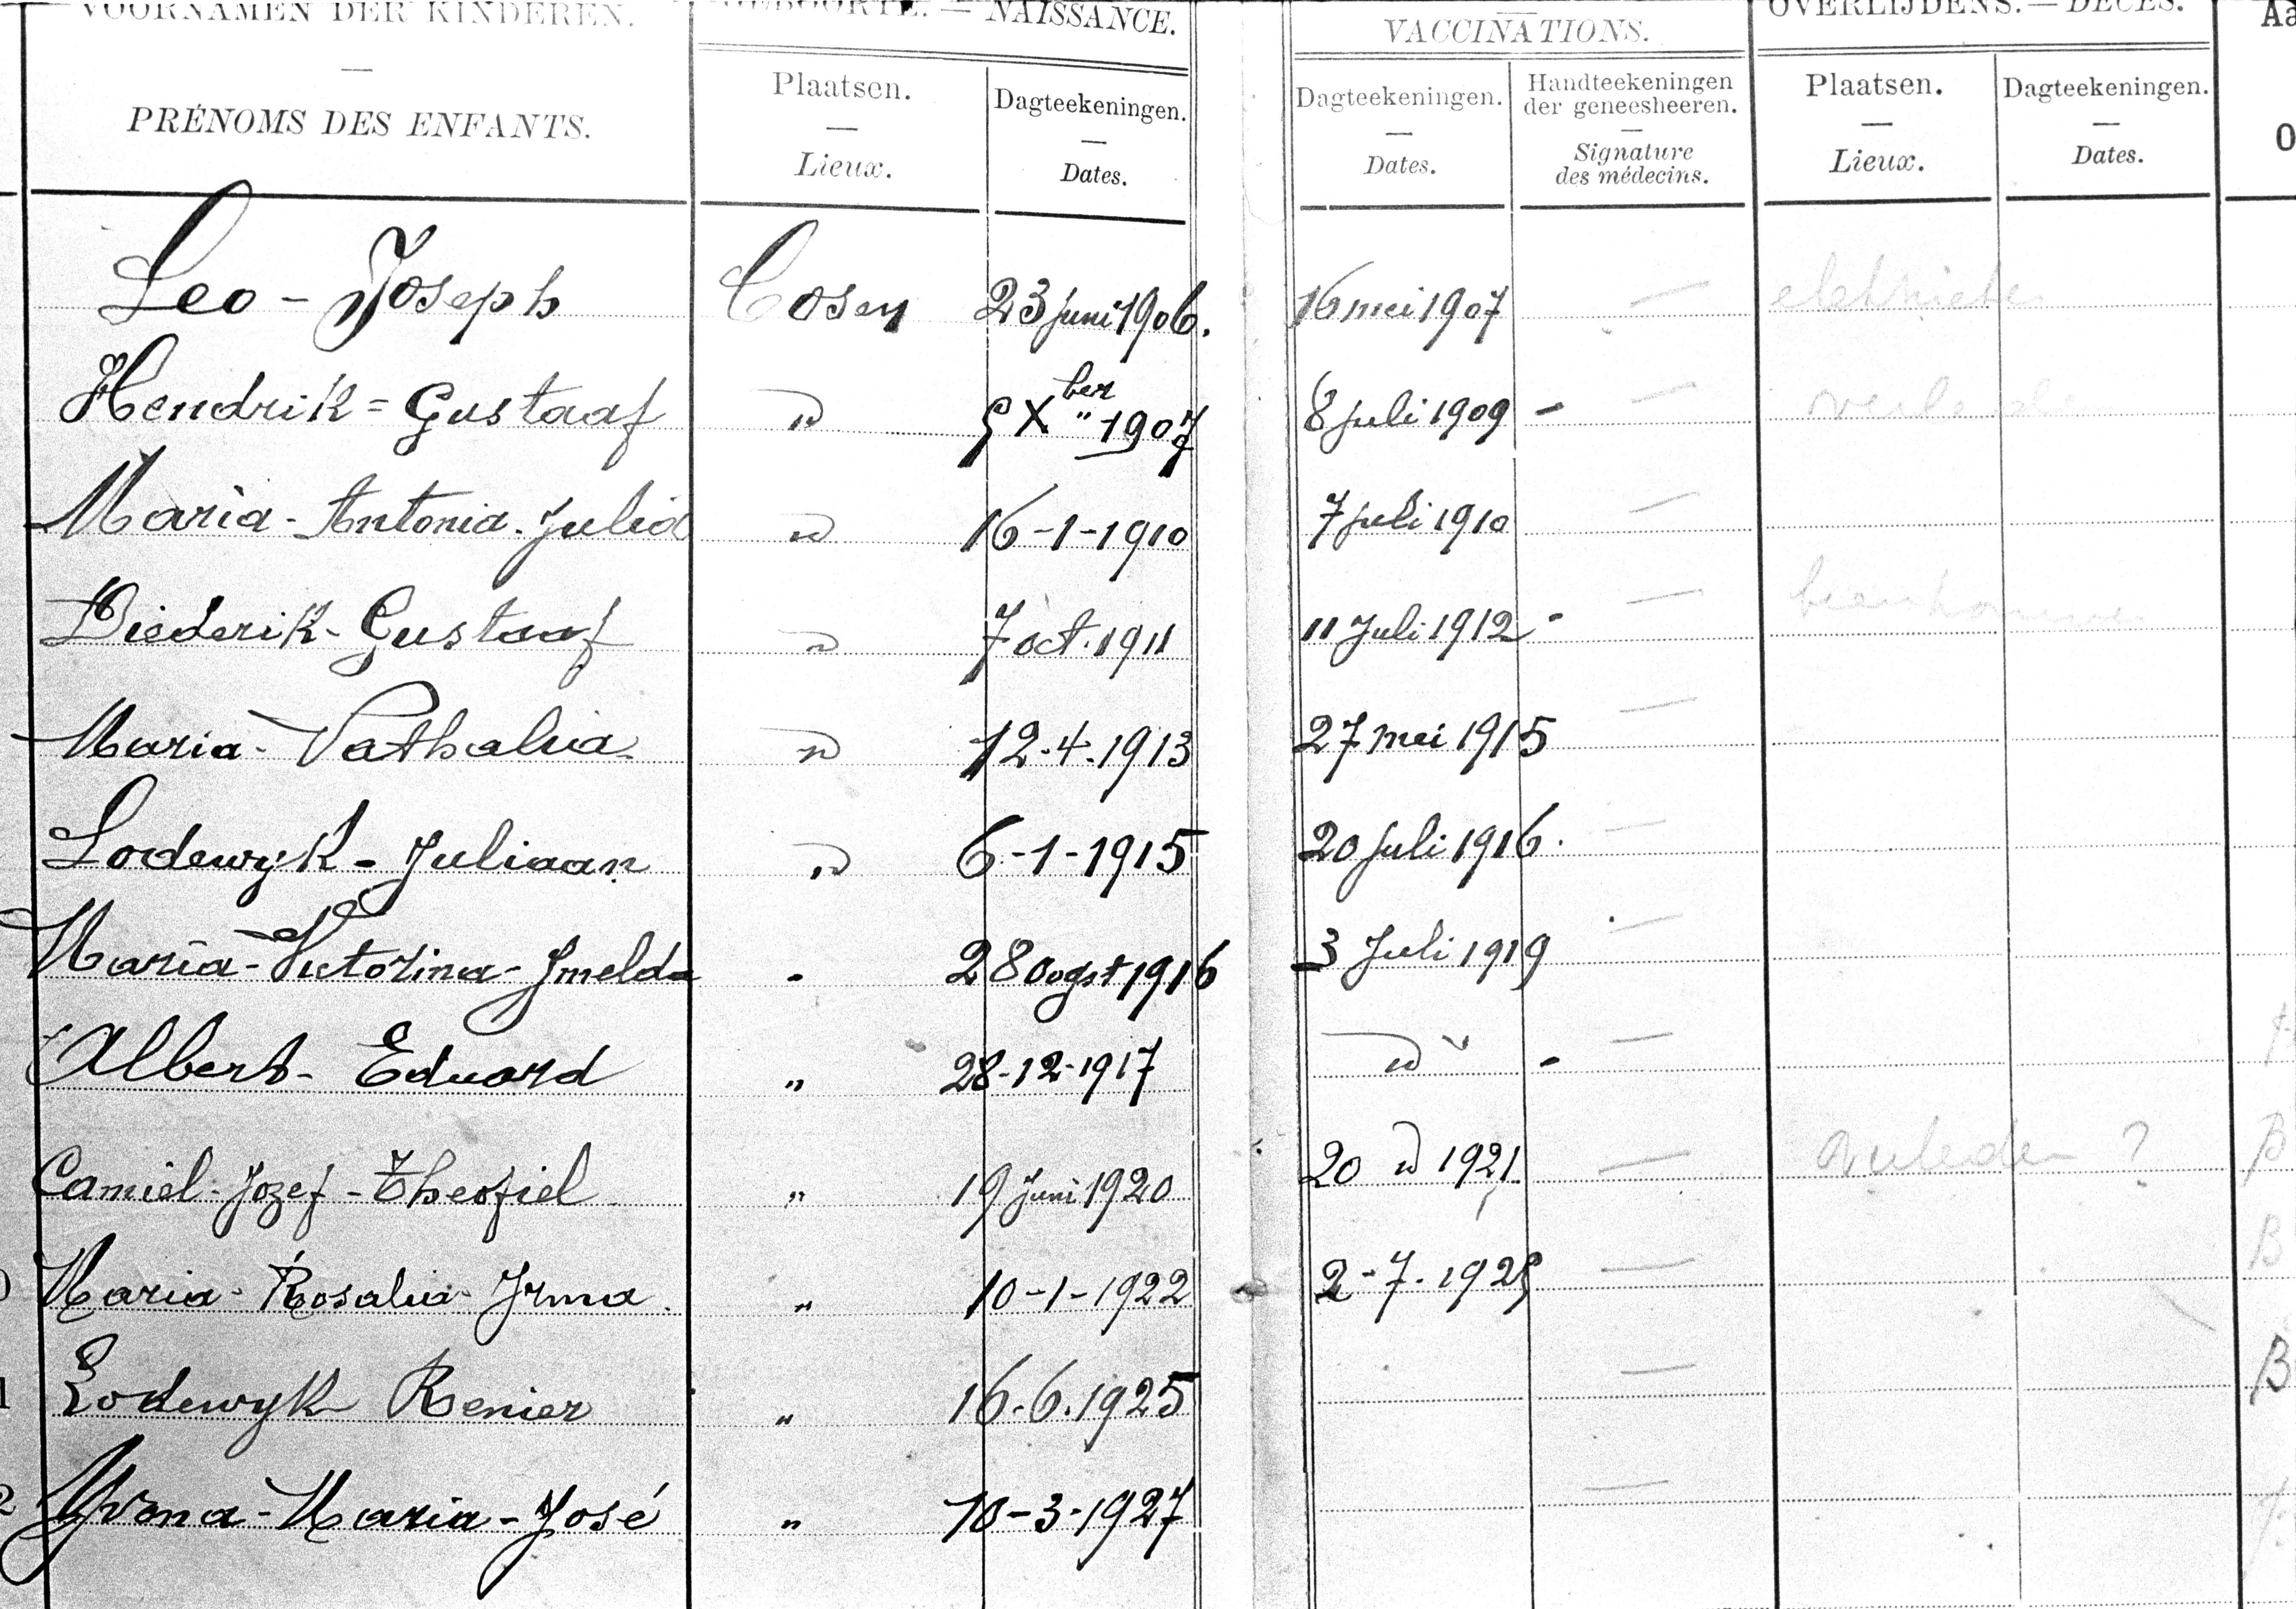 VOORNAMEN DER KINDEREN.
—
PRÉNOMS DES ENFANTS.
GEBOORTE. — NAISSANCE.
Plaatsen. — Lieux.
Dagteekeningen. — Dates.
VACCINATIONS.
Dagteekeningen. — Dates.
Handteekeningen der geneesheeren. — Signature des médecins.
OVERLIJDENS. — DÉCÈS.
Plaatsen. — Lieux.
Dagteekeningen. — Dates.
Aa
O
Leo - Joseph Cosen 23 juni 1906. 16 mei 1907 —
Hendrik = Gustaaf " 9 Xber " 1907 8 juli 1909 - —
Maria - Antonia - Julia " 16-1-1910 7 juli 1910 —
Diederik - Gustaaf " 7 oct. 1911 11 Juli 1912 - —
Maria - Nathalia " 12-4-1913 27 mei 1915 —
Lodewyk - Juliaan " 6-1-1915 20 juli 1916. —
Maria - Victorina - Imelda " 28 oogst 1916 3 Juli 1919 —
Albert - Eduard " 28-12-1917 " - —
Camiel - Jozef - Theofiel " 19 juni 1920 20 " 1921 — overleden ? B
Maria - Rosalia - Irma. " 10-1-1922 2-7-1925 — B
1 Lodewyk Renier " 16.6.1925 — B
2 Yvona - Maria - José " 10-3-1927 —